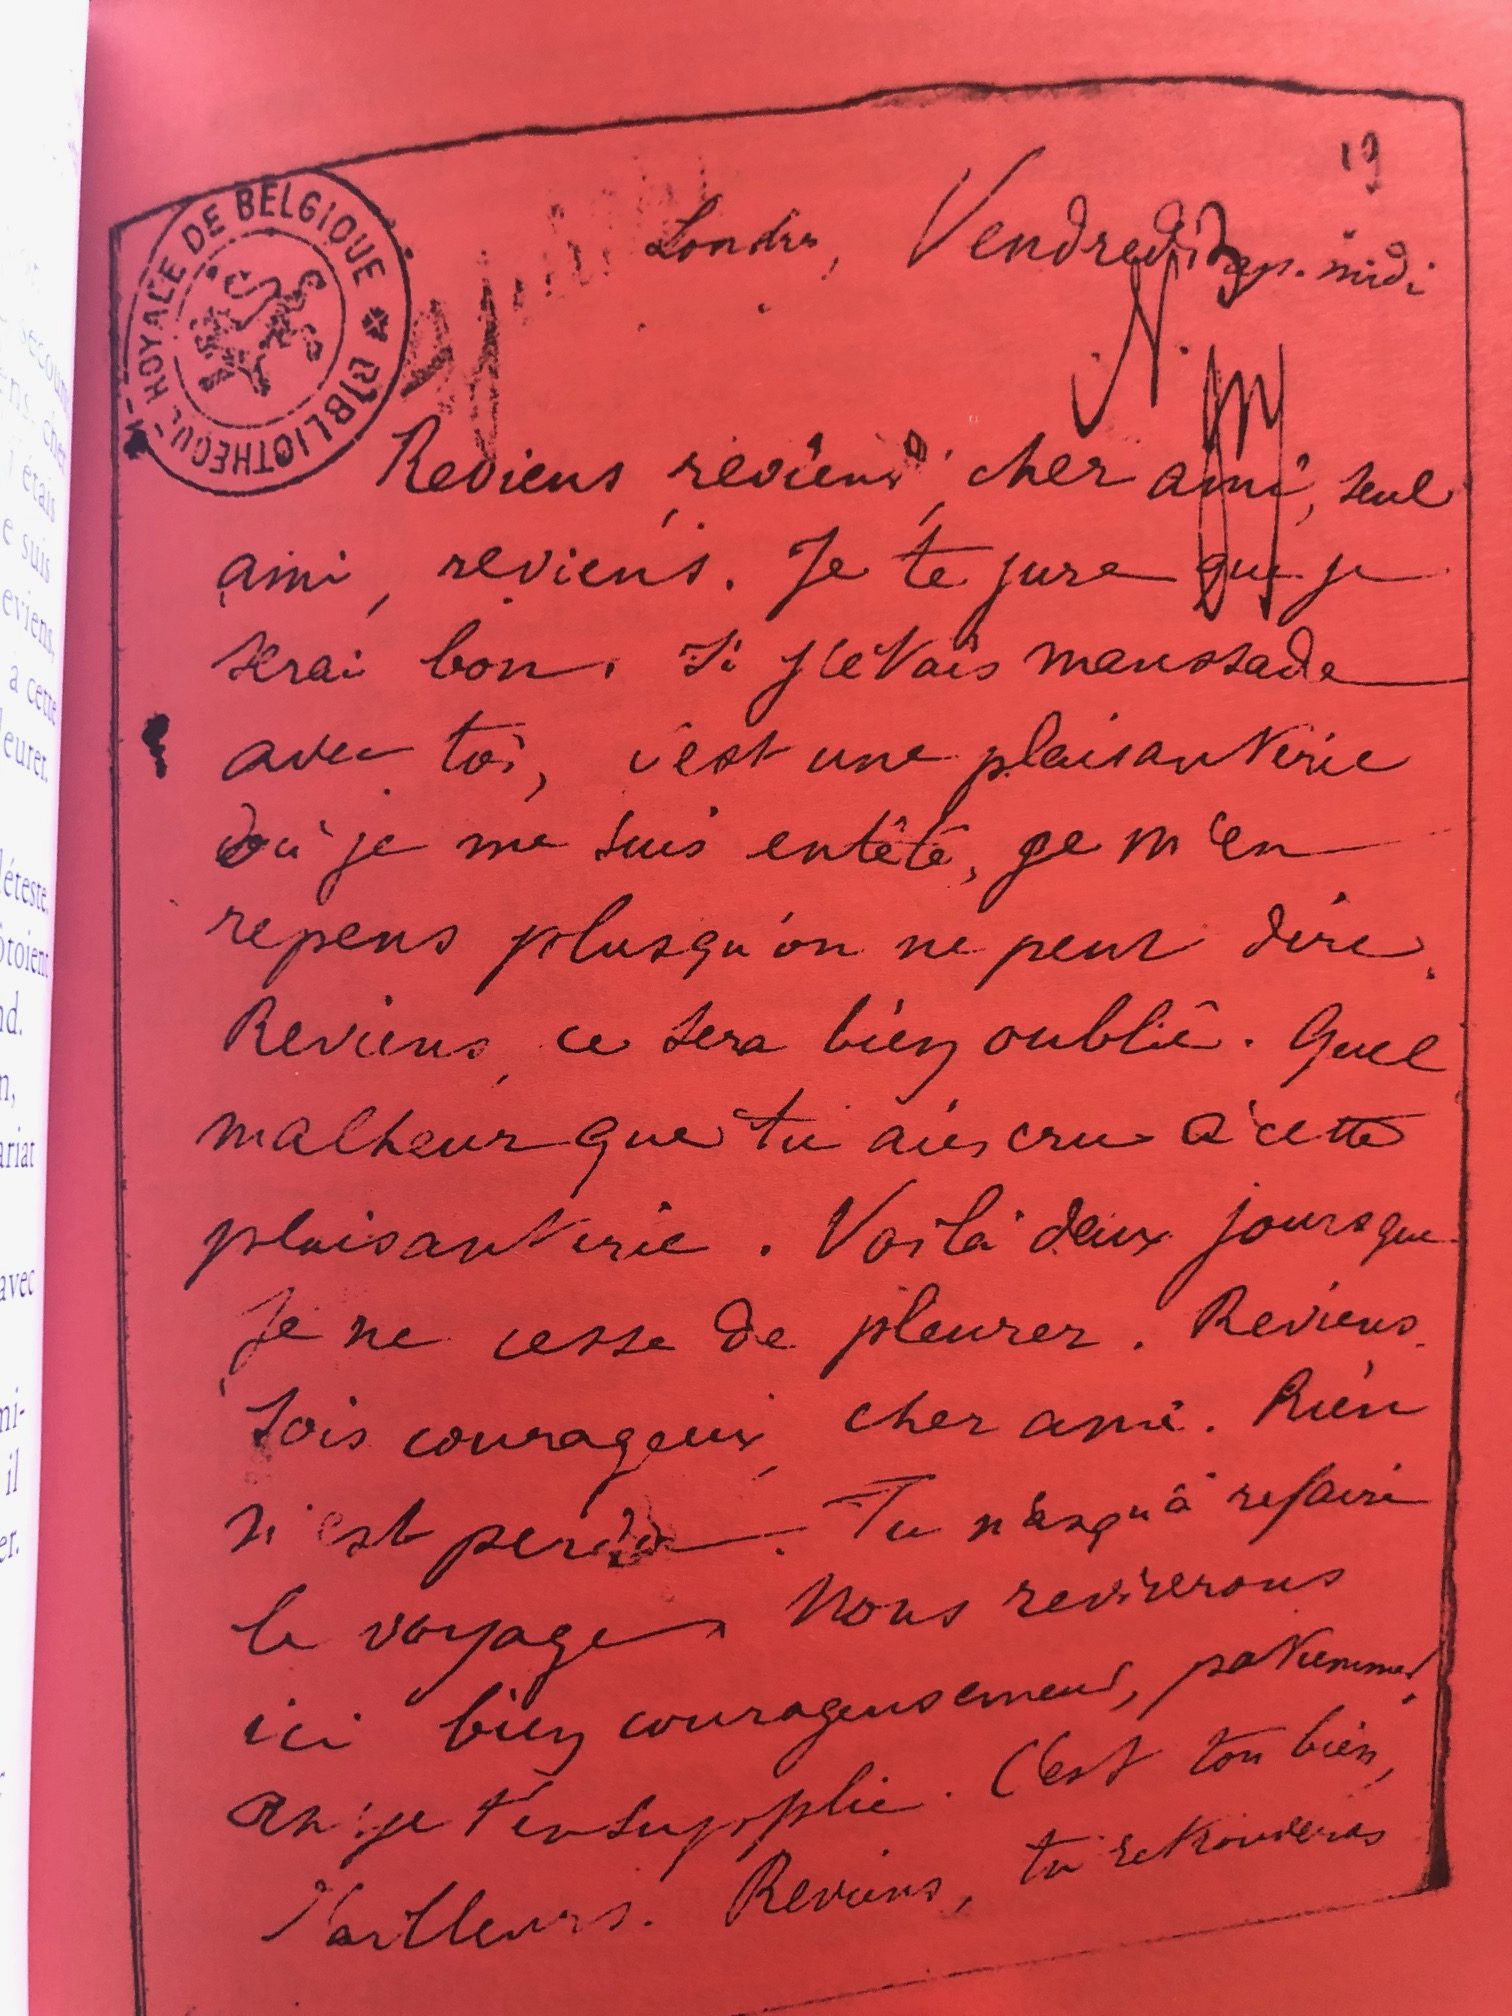 secoun
ens. cher
j'étais
e suis
eviens,
à cette
leurer.
déteste.
ôtoient
nd.
n,
ariat
avec
mi-
il
er.
BIBLIOTHEQUE ROYALE DE BELGIQUE
19
Londres, Vendredi ap. midi
Reviens, reviens, cher ami, seul
ami, reviens. Je te jure que je
serai bon. Si j'étais maussade
avec toi, c'est une plaisanterie
où je me suis entêté, je m'en
repens plus qu'on ne peut dire.
Reviens, ce sera bien oublié. Quel
malheur que tu aies cru à cette
plaisanterie. Voilà deux jours que
je ne cesse de pleurer. Reviens.
Sois courageux, cher ami. Rien
n'est perdu. Tu n'as qu'à refaire
le voyage. Nous revivrons
ici bien courageusement, patiemment
Ah ! je t'en supplie. C'est ton bien,
d'ailleurs. Reviens, tu retrouveras